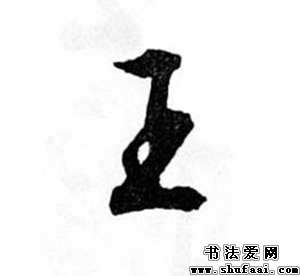 王
书法爱网
www.shufaai.com